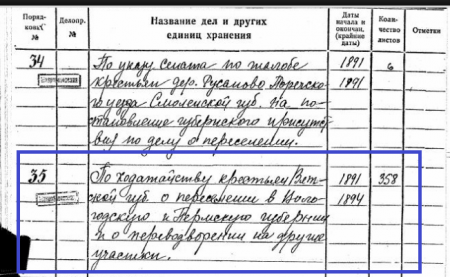 Порядковый №
Делопр. №
Название дел и других единиц хранения
Даты начала и окончан. (крайние даты)
Количество листов
Отметки
34
По указу сената по жалобе
крестьян дер. Русаново Поречско
го уезда Смоленской губ. на по-
становление губернского присутст
вия по делу о переселении.
1891
1891
6
35
По ходатайству крестьян Вят-
ской губ. о переселении в Воло-
годскую и Пермскую губернии
и о переводворении на другие
участки.
1891
1894
358